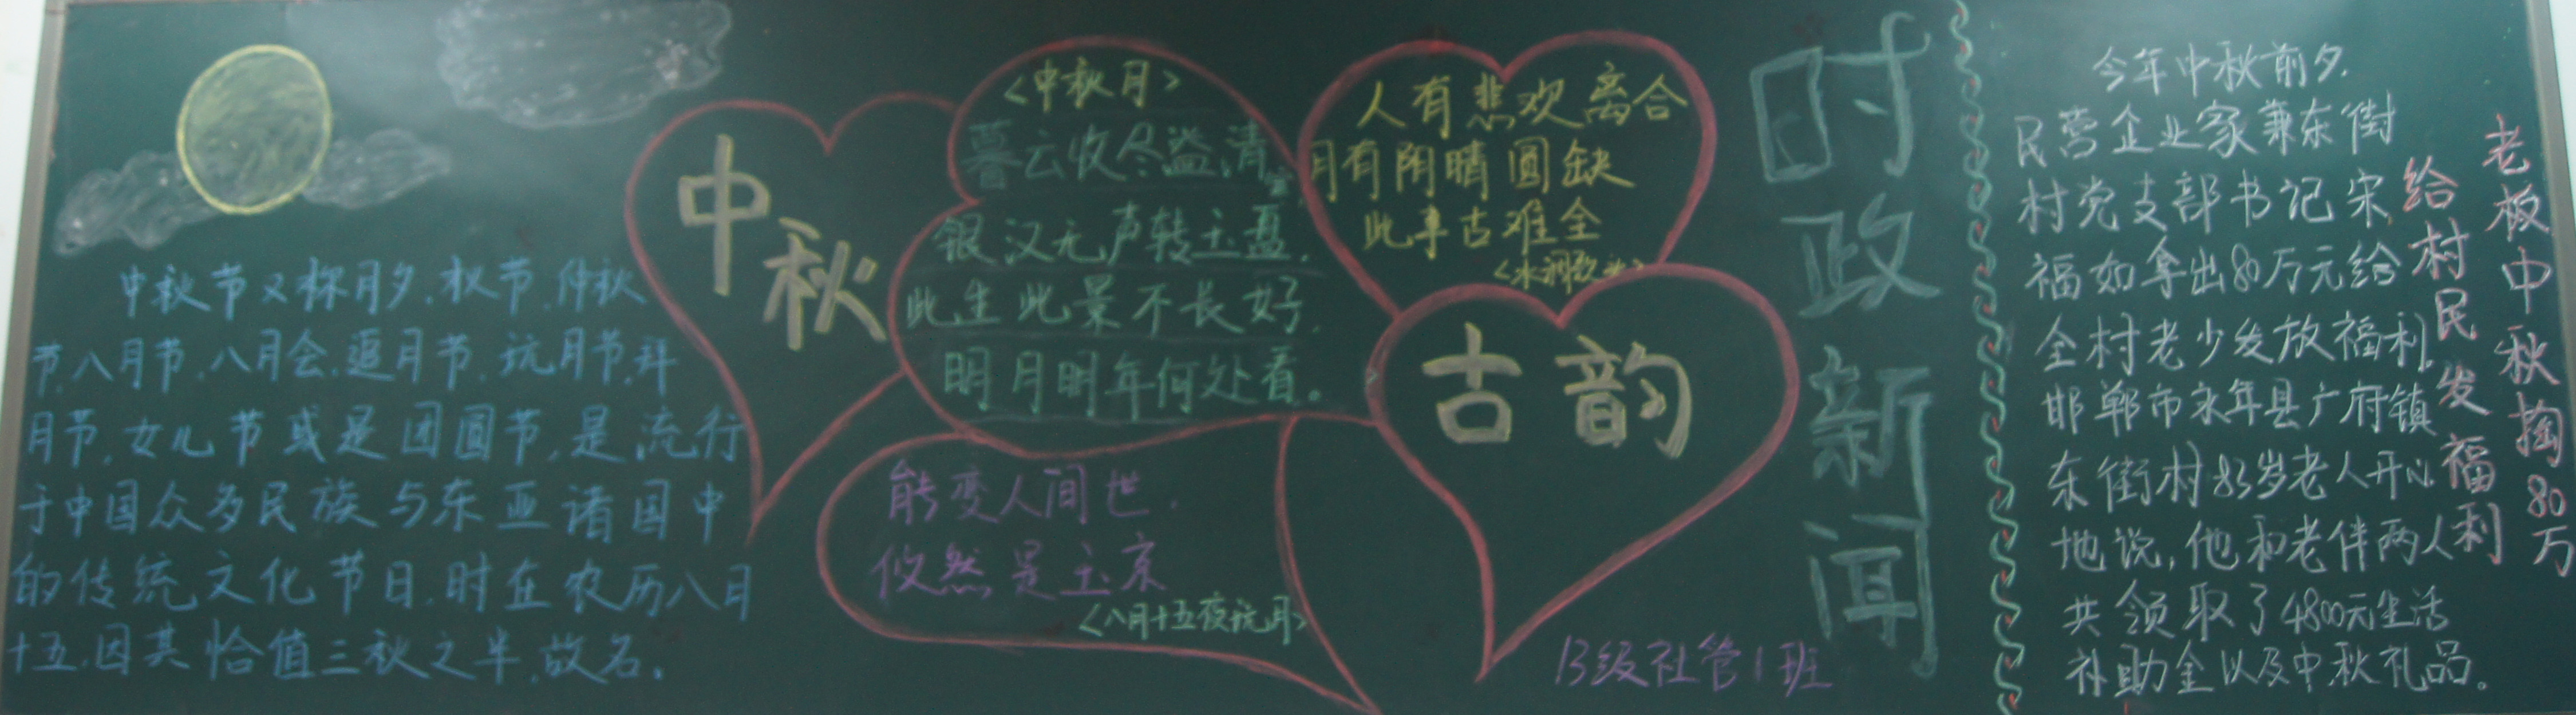 中秋节又称月夕.秋节.仲秋
节.八月节.八月会.追月节.玩月节.拜
月节.女儿节或是团圆节,是流行
于中国众多民族与东亚诸国中
的传统文化节日.时在农历八月
十五.因其恰值三秋之半,故名。
中秋
<中秋月>
暮云收尽溢清
银汉无声转玉盘.
此生此景不长好.
明月明年何处看。
人有悲欢离合
月有阴晴圆缺
此事古难全
<水调歌头>
古韵
能变人间世.
攸然是玉京
<八月十五夜玩月>
13级社管1班
时政新闻
今年中秋前夕.
民营企业家兼东街
村党支部书记宋
福如拿出80万元给
全村老少发放福利.
邯郸市永年县广府镇
东街村83岁老人开心
地说,他和老伴两人
共领取了4800元生活
补助金以及中秋礼品。
老板中秋掏80万
给村民发福利